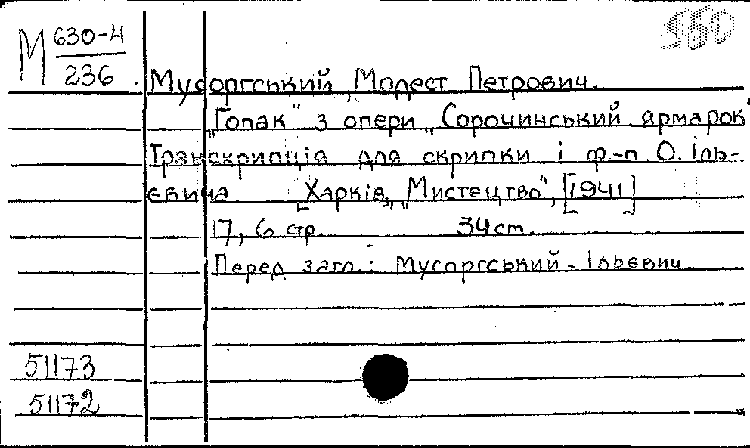 М 630-4
236
560
Мусоргський, Модест Петрович.
"Гопак" з опери "Сорочинський ярмарок"
Транскрипція для скрипки і ф-п О. Іль-
євича [Харків, "Мистецтво", [1941]
17, 6 стр. 34 cm.
Перед загол.: Мусоргський - Ільєвич
51173
51172